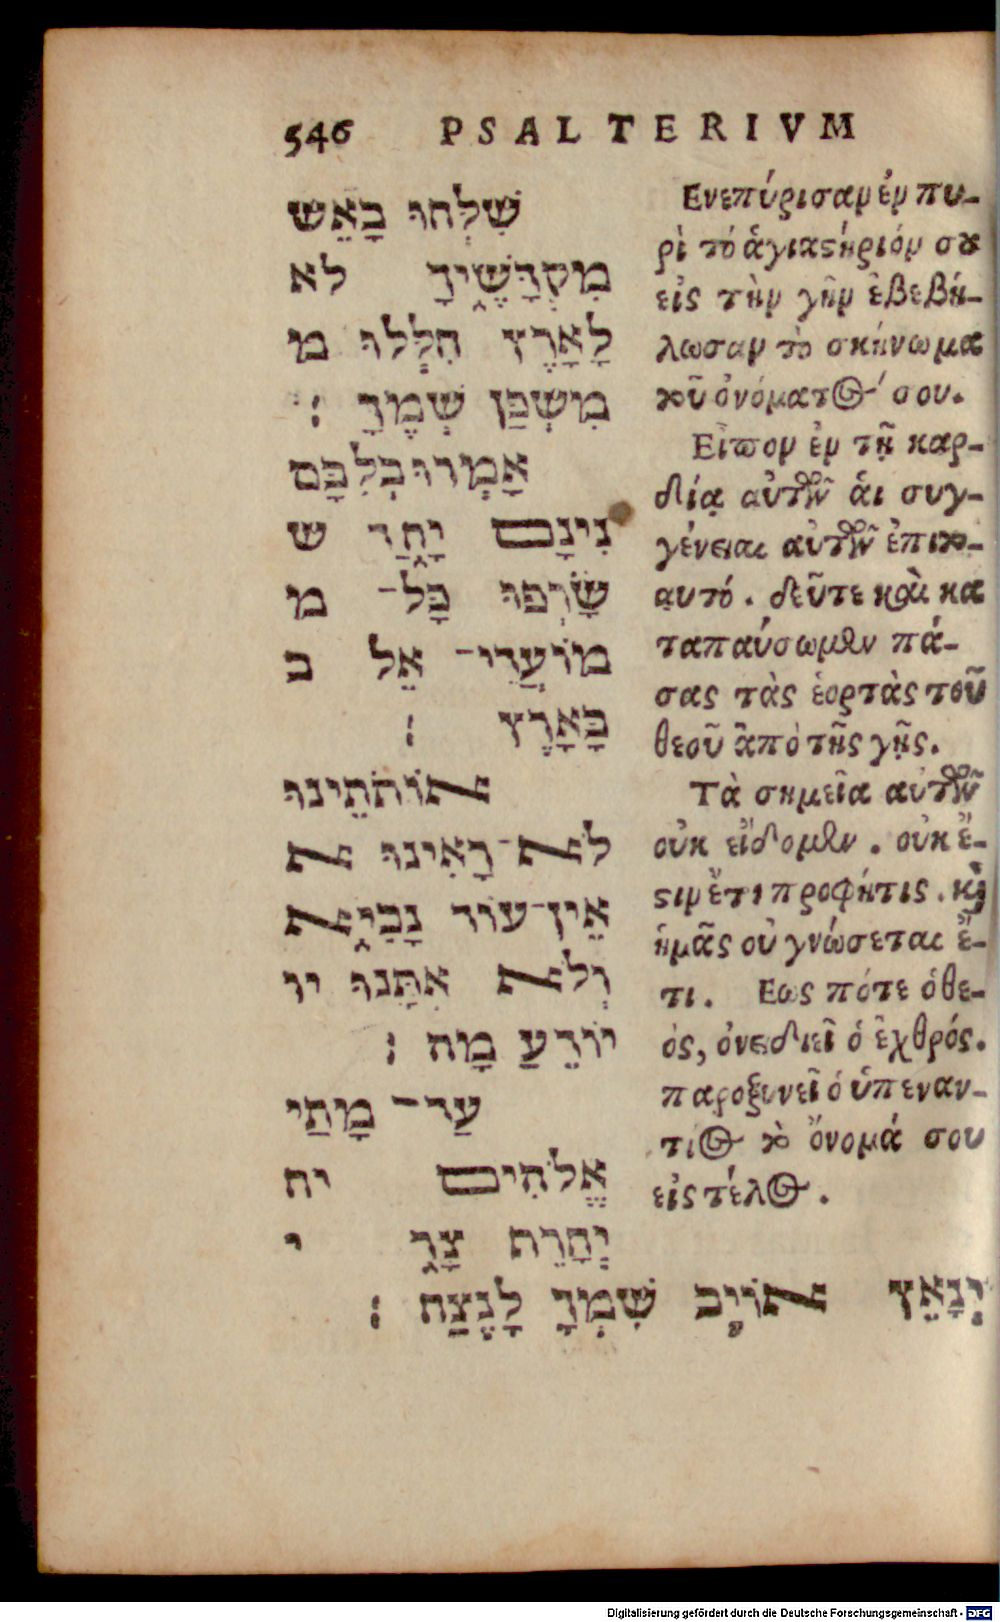 546 PSALTERIVM
שִׁלְּחוּ בָּאֵשׁ
מִקְדָּשֶׁיךָ לא
לָאָרֶץ חִלְּלוּ מ
מִשְׁכַּן שְׁמֶךָ :
אָמְרוּ בְלִבָּם
נִינָם יָחַד ש
שָׂרְפוּ כָּל־ מ
מוֹעֲדֵי־ אֵל ב
בָּאָרֶץ :
אוֹתֹתֵינוּ
לֹא־רָאִינוּ א
אֵין־עוֹד נָבִיא
וְלֹא אִתָּנוּ יו
יוֹדֵעַ מָה :
עַד־ מָתַי
אֱלֹהִים יח
יְחָרֵף צָר י
יְנָאֵץ אוֹיֵב שִׁמְךָ לָנֶצַח :
Ενεπύρισαν ἐν πυ-
ρὶ τό ἁγιαϛήριόν σȣ
εἰς τὴν γῆν ἐβεβή-
λωσαν τὸ σκήνωμα
τοῦ ὀνόματος σου.
Εἶπον ἐν τῇ καρ-
δίᾳ αὐτῶν ἁι συγ-
γένειαι αὐτῶν ἐπιτο-
αυτό. δεῦτε καὶ κα
ταπαύσωμεν πά-
σας τὰς ἑορτὰς τοῦ
θεοῦ ἀπὸ τῆς γῆς.
Τὰ σημεῖα αὐτῶν
οὐκ εἴδομεν. οὐκ ἔ-
ϛιν ἔτι προφήτις. κὶ
ἡμᾶς οὐ γνώσεται ἔ-
τι. Εως πότε ὁ θε-
ός, ὀνειδιεῖ ὁ ἐχθρός.
παροξυνεῖ ὁ ὑπεναν-
τίος τὸ ὄνομά σου
εἰς τέλος.
Digitalisierung gefördert durch die Deutsche Forschungsgemeinschaft - DFG